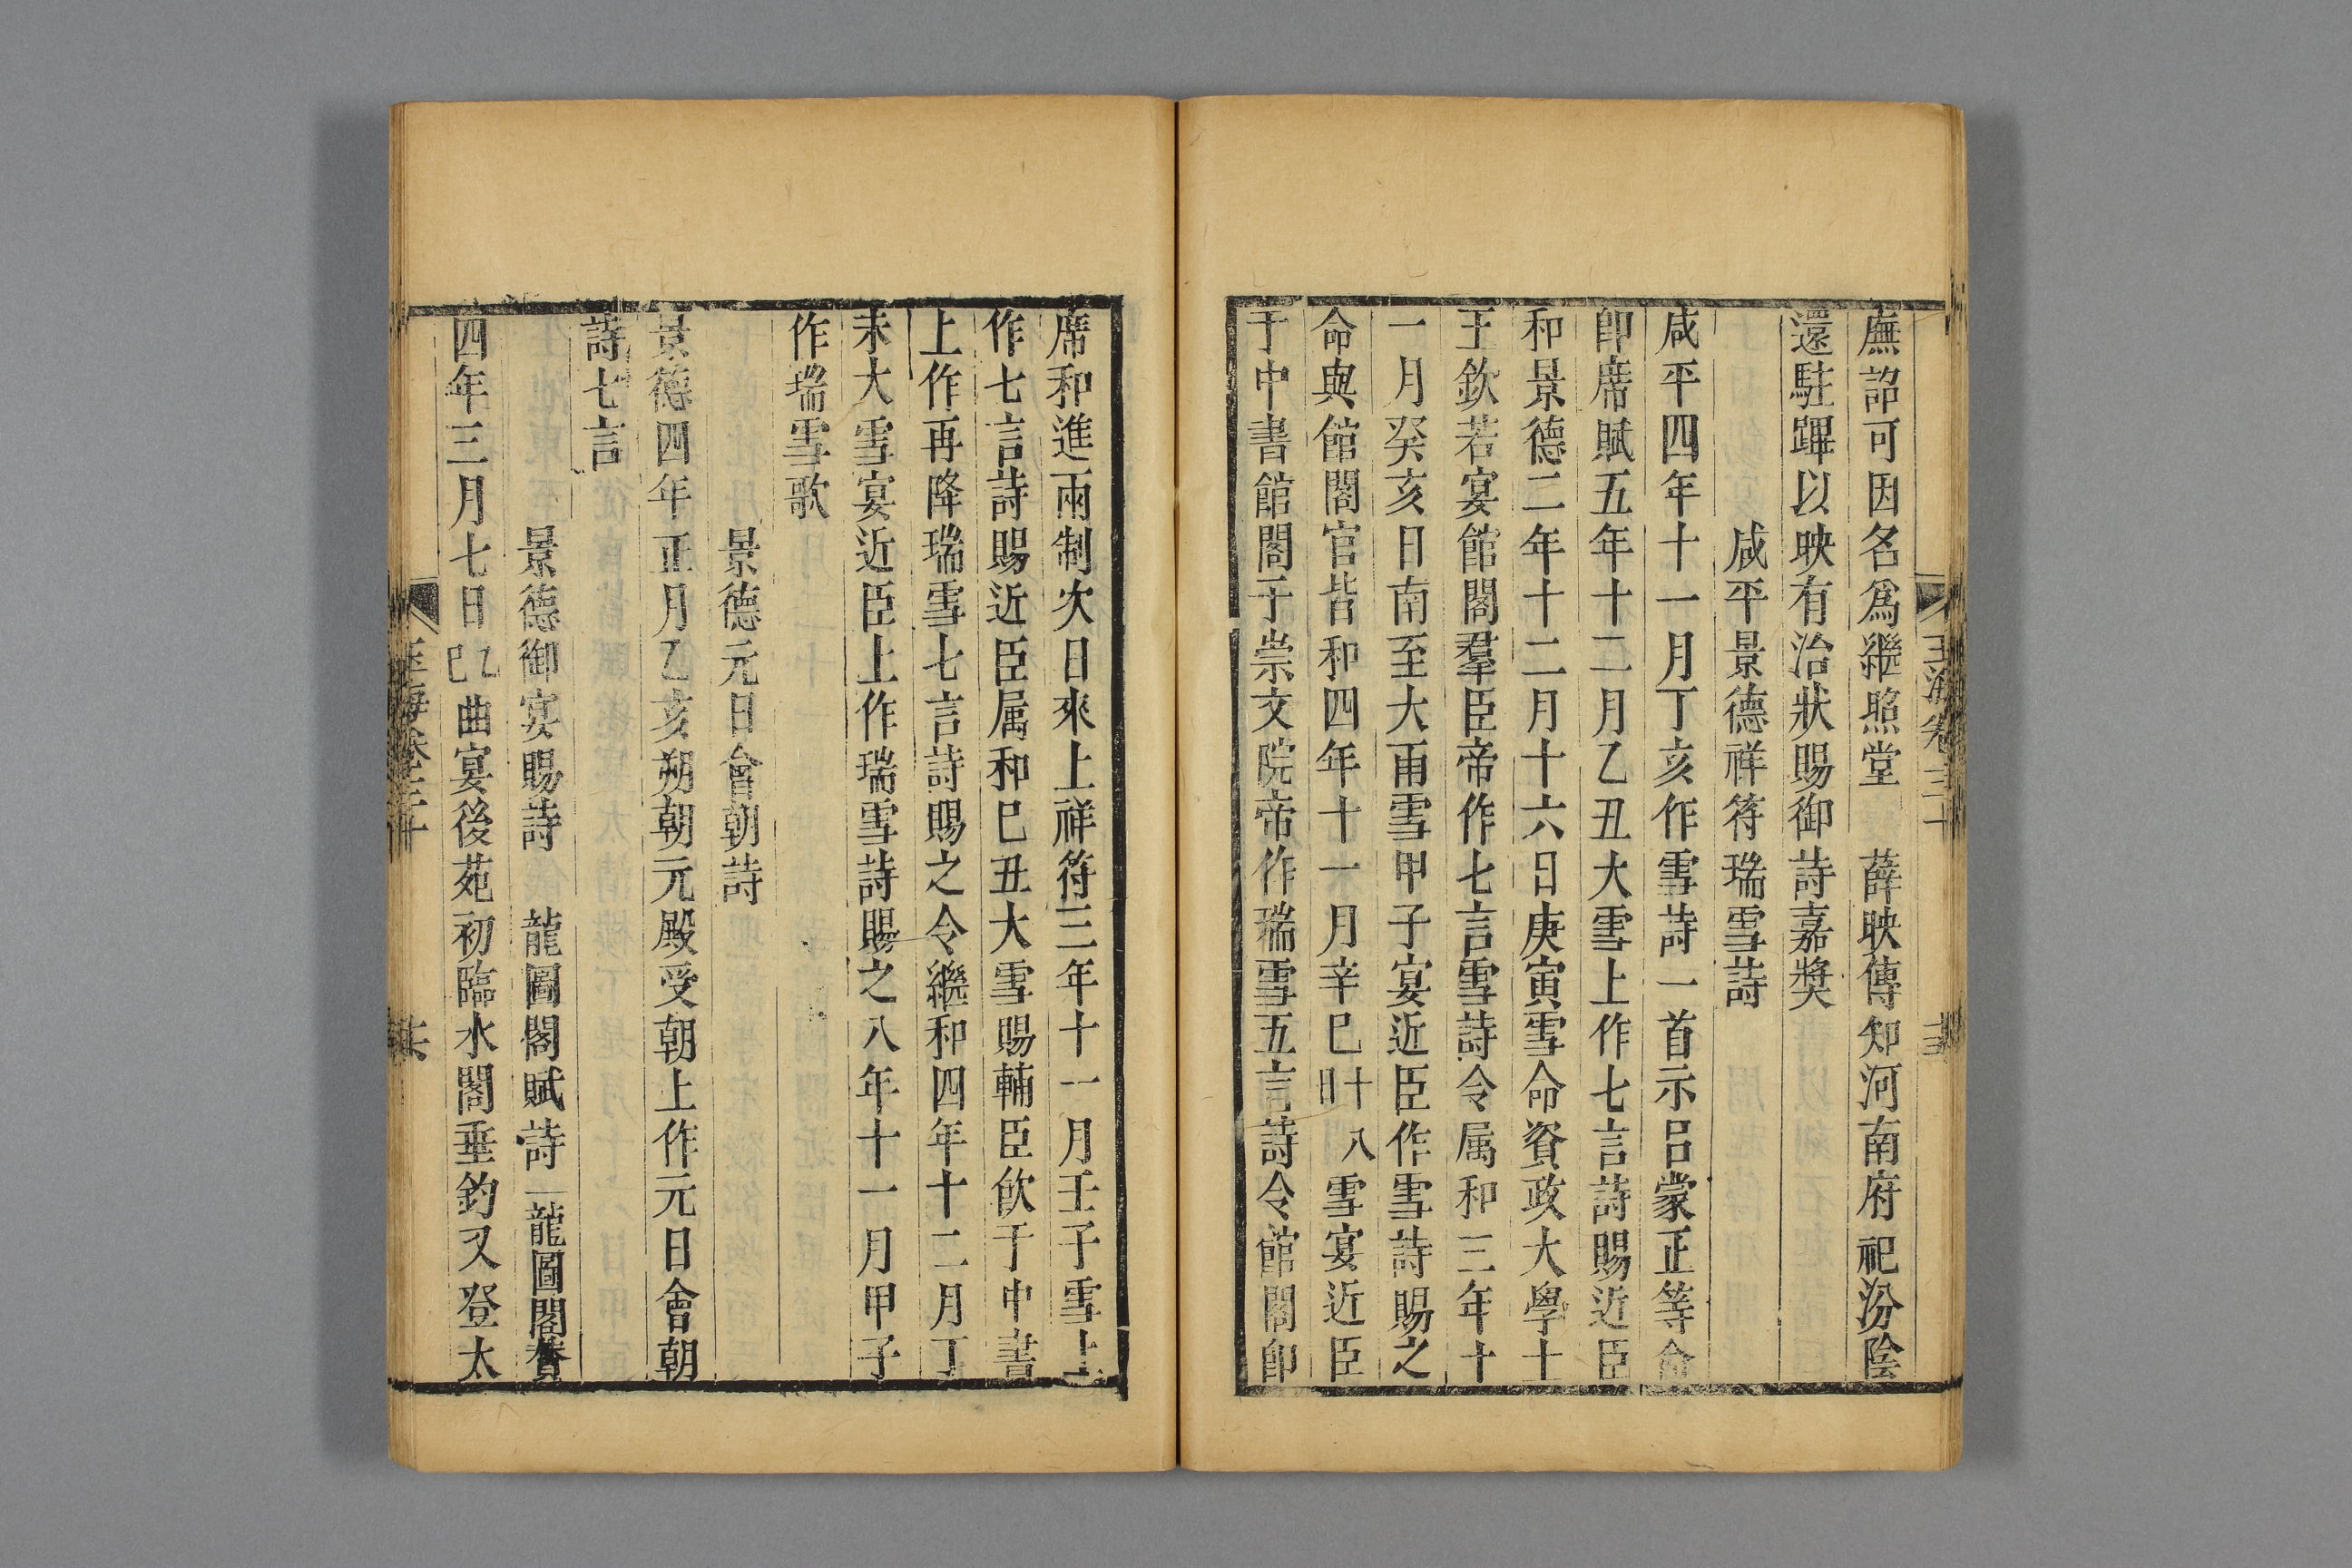 廡詔可因名爲繼照堂　薛映傳知河南府祀汾陰
還駐蹕以映有治狀賜御詩嘉獎
咸平景德祥符瑞雪詩
咸平四年十一月丁亥作雪詩一首示呂蒙正等命
卽席賦五年十二月乙丑大雪上作七言詩賜近臣
和景德二年十二月十六日庚寅雪命資政大學士
王欽若宴館閣羣臣帝作七言雪詩令属和三年十
一月癸亥日南至大雨雪甲子宴近臣作雪詩賜之
命與館閣官皆和四年十一月辛巳十八日雪宴近臣
于中書館閣于崇文院帝作瑞雪五言詩令館閣卽
席和進兩制次日來上祥符三年十一月壬子雪上
作七言詩賜近臣属和巳丑大雪賜輔臣飮于中書
上作再降瑞雪七言詩賜之令繼和四年十二月丁
未大雪宴近臣上作瑞雪詩賜之八年十一月甲子
作瑞雪歌
景德元日會朝詩
景德四年正月乙亥朔朝元殿受朝上作元日會朝
詩七言
景德御宴賜詩　龍圖閣賦詩　龍圖閣
四年三月七日乙巳曲宴後苑初臨水閣垂釣又登太
玉海卷三十